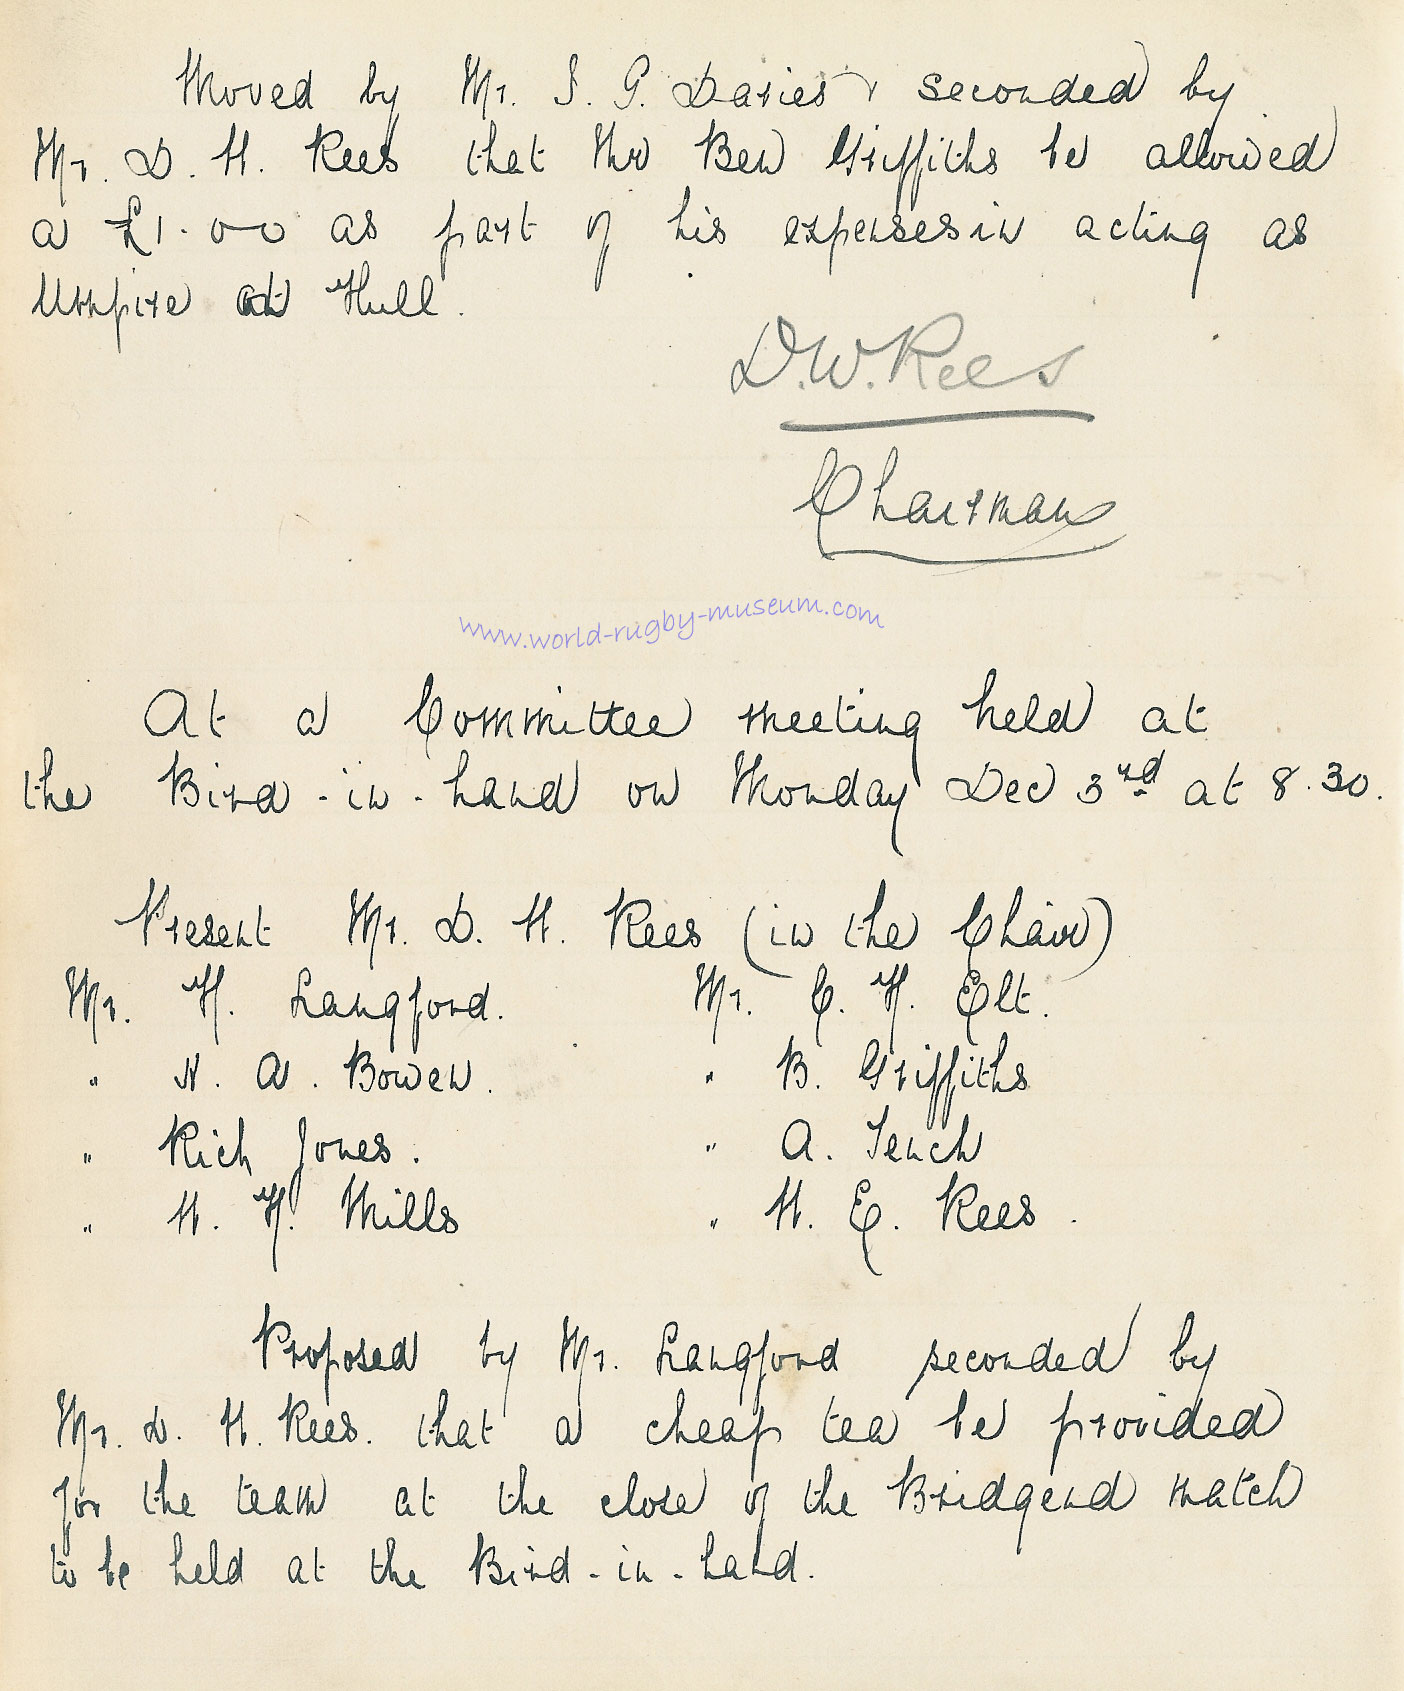 Moved by Mr. J. G. Davies & seconded by
Mr. D. W. Rees that Mr Ben Griffiths be allowed
a £1.0-0 as part of his expenses in acting as
Umpire at Hull.
D.W.Rees
Chairman
www.world-rugby-museum.com
At a Committee meeting held at
the Bird-in-hand on Monday Dec 3rd at 8.30.
Present Mr. D. W. Rees (in the Chair)
Mr. H. Langford. Mr. C. H. Elt.
" N. A. Bowen. " B. Griffiths
" Rich Jones. " A. Tench
" W. H. Mills " W. E. Rees.
Proposed by Mr. Langford seconded by
Mr. D. W. Rees. that a cheap tea be provided
for the team at the close of the Bridgend match
to be held at the Bird-in-hand.